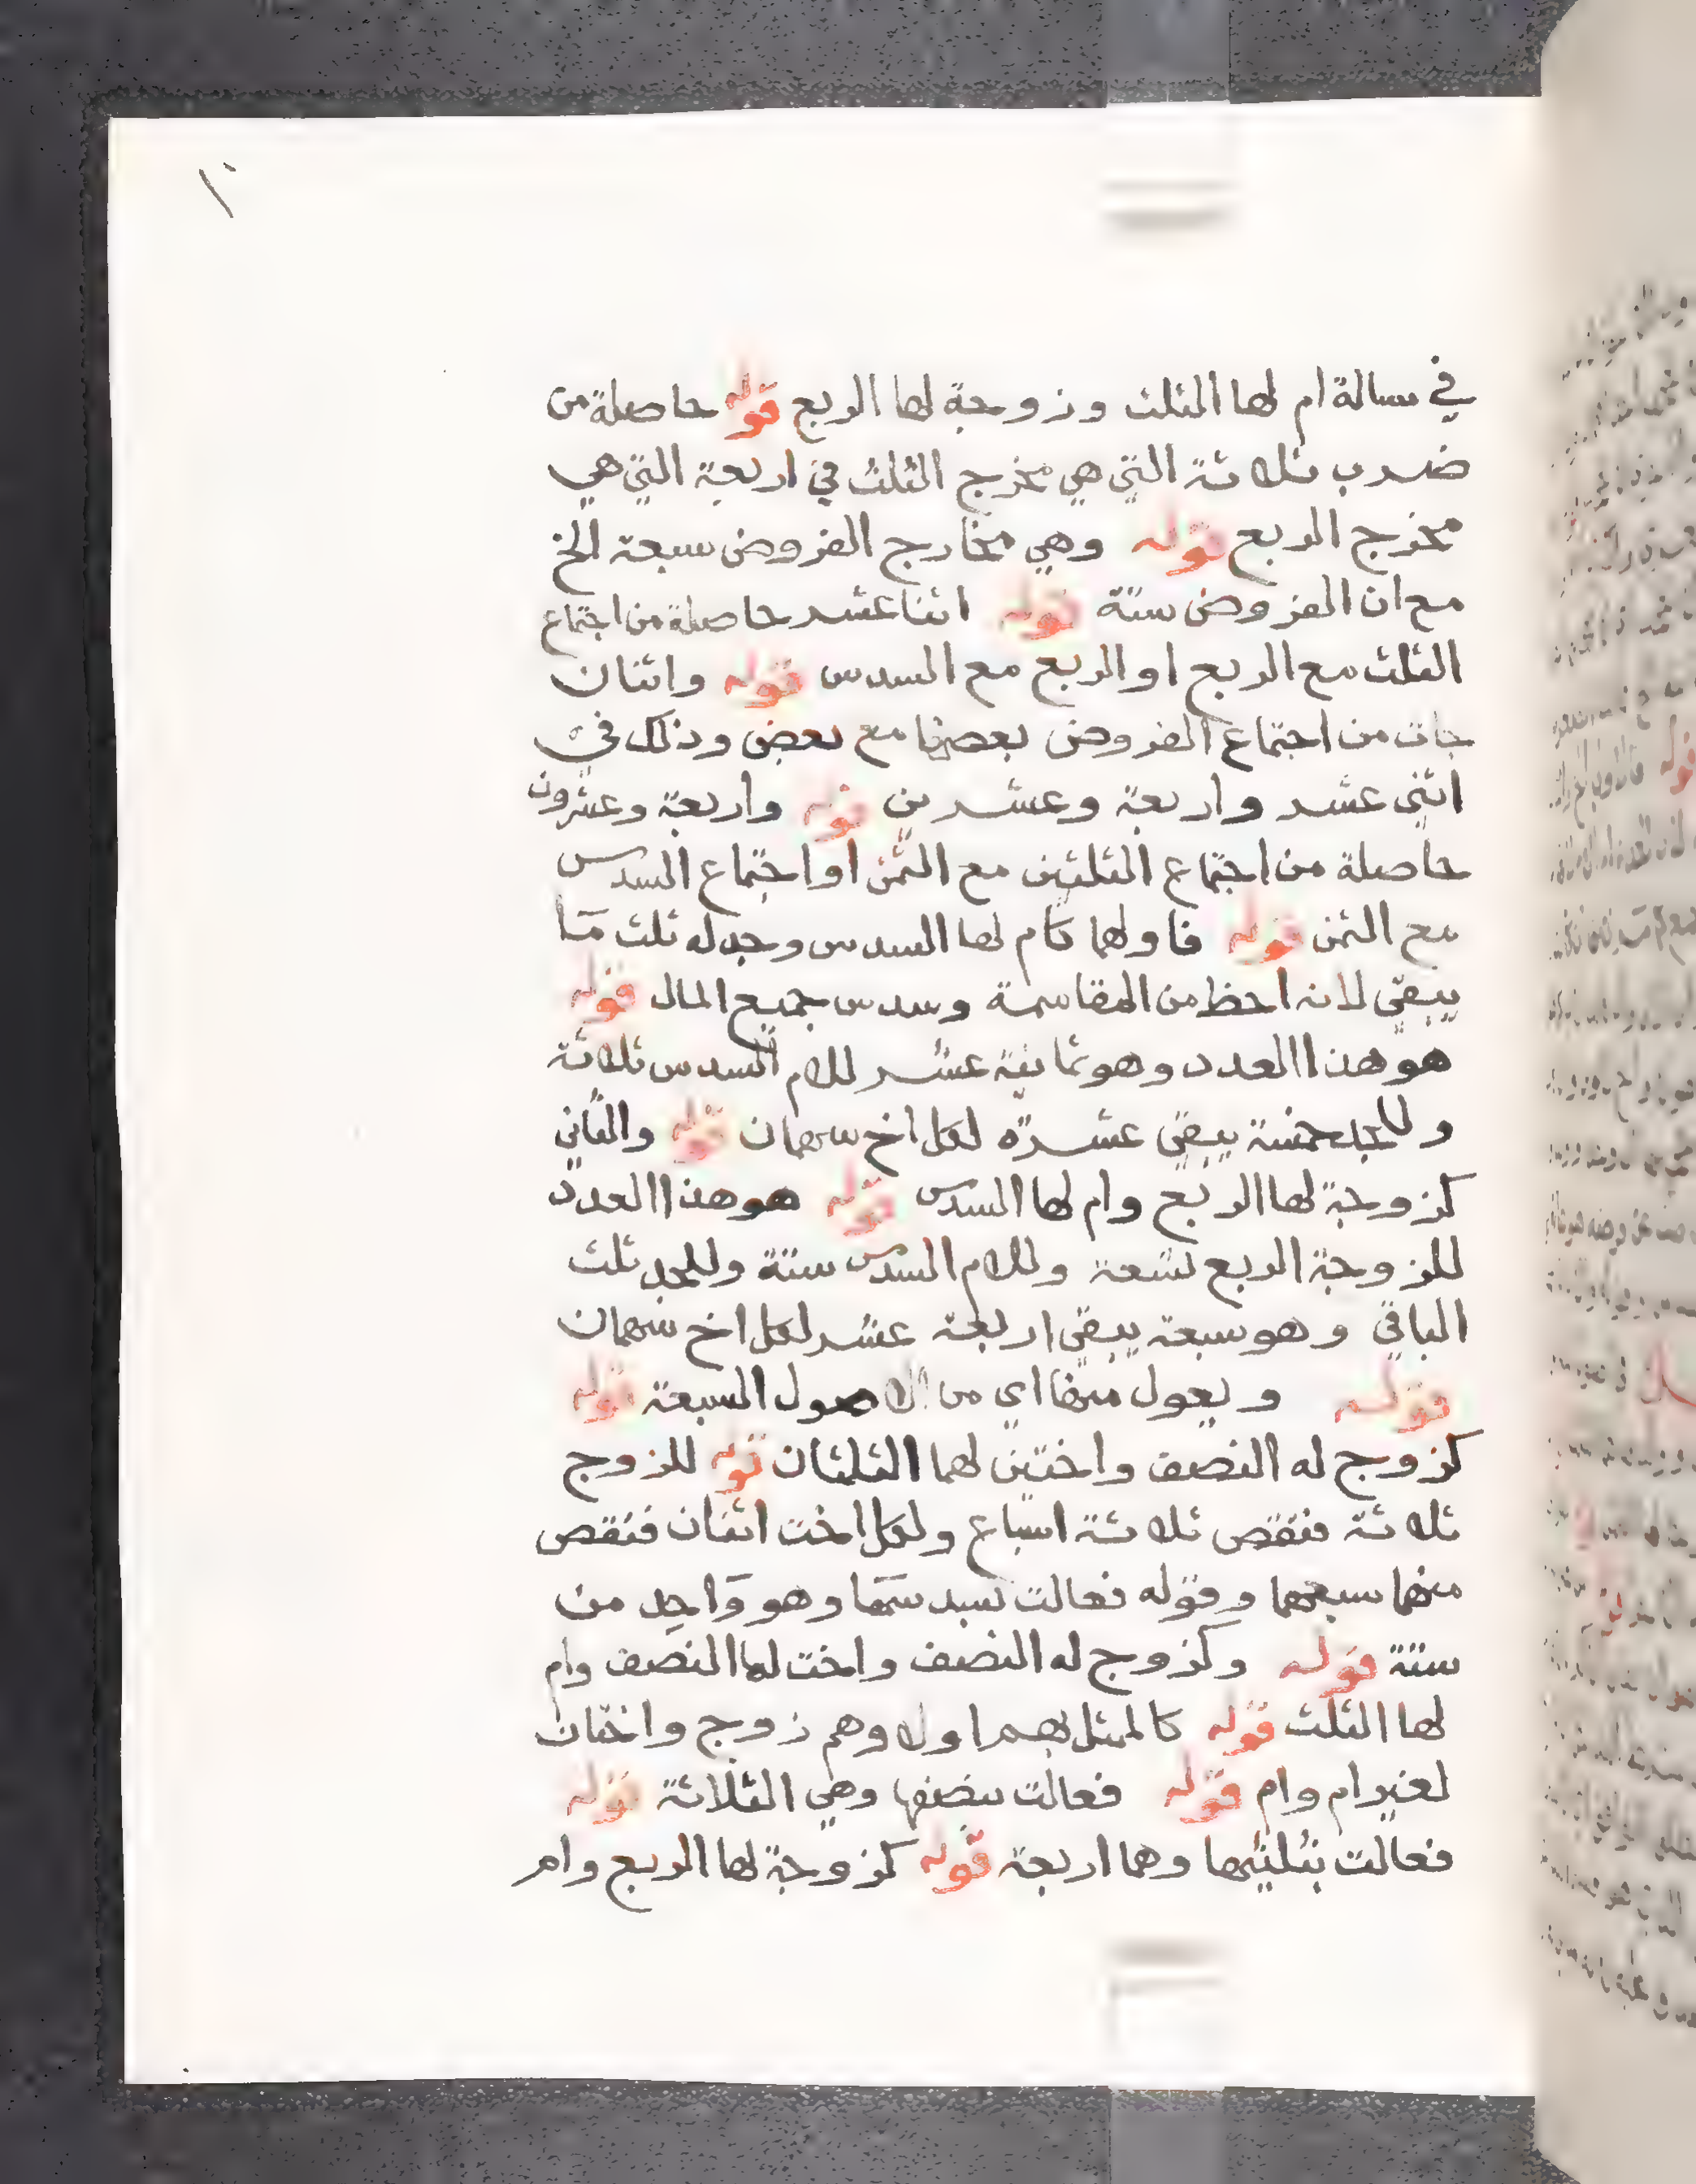 ١٠
في مسالة ام لها الثلث وزوجة لها الربع قوله حاصلة من
ضرب ثلاثة التي هي مخرج الثلث في اربعة التي هي
مخرج الربع قوله وهي مخارج الفروض سبعة الخ
مع ان الفروض ستة قوله اثنا عشر حاصلة من اجتماع
الثلث مع الربع او الربع مع السدس قوله واثنان
جات من اجتماع الفروض بعضها مع بعض وذلك في
اثني عشر واربعة وعشرين قوله واربعة وعشرون
حاصلة من اجتماع الثلثين مع الثمن او اجتماع السدس
مع الثمن قوله فاولهما كام لها السدس وجد له ثلث مَا
يبقي لانه احظ من المقاسمة وسدس جميع المال قوله
هو هذا العدد وهو ثمانية عشر للام السدس ثلاثة
وللجد خمسة يبقي عشرة لكل اخ سهمان قوله والثاني
كزوجة لها الربع وام لها السدس قوله هو هذا العدد
للزوجة الربع تسعة وللام السدس ستة وللجد ثلث
الباقي وهو سبعة يبقي اربعة عشر لكل اخ سهمان
قوله ويعول منها اي من الاصول السبعة قوله
كزوج له النصف واختين لهما الثلثان قوله للزوج
ثلاثة فنقص ثلاثة اسباع ولكل اخت اثنان فنقص
منهما سبعهما وقوله فعالت بسدسهَا وهو وَاحِد من
ستة قوله وكزوج له النصف واخت لها النصف وام
لها الثلث قوله كالمثل بهم اولا وهم زوج واختان
لغير ام وام قوله فعالت بنصفها وهي الثلاثة قوله
فعالت بثلثيها وهما اربعة قوله كزوجة لها الربع وام